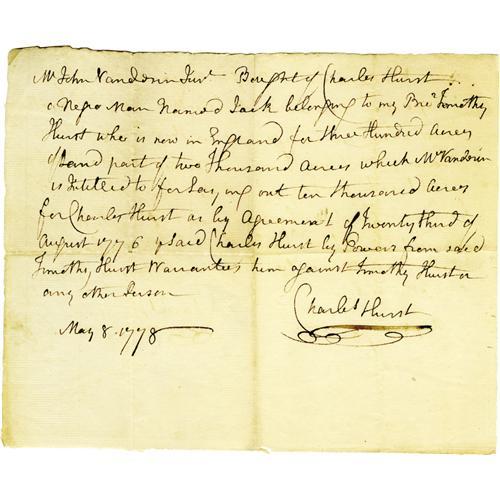 Mr John Vanderin Junr Bought of Charles Hurst
a Negro Man Named Jack belonging to my Bror Timothy
Hurst who is now in England for three Hundred Acres
of Land part of two Thousand Acres which Mr Vanderin
is Intitled to for Laying out ten thousand Acres
for Charles Hurst as by Agreement of Twenty third of
August 1776 & Said Charles Hurst by Powers from said
Timothy Hurst Warrantees him against Timothy Hurst or
any other Person
Charles Hurst
May 8. 1778